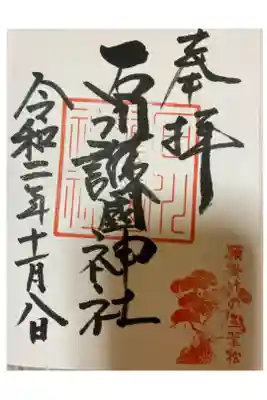 奉拝
石川護國神社
令和二年十一月八日